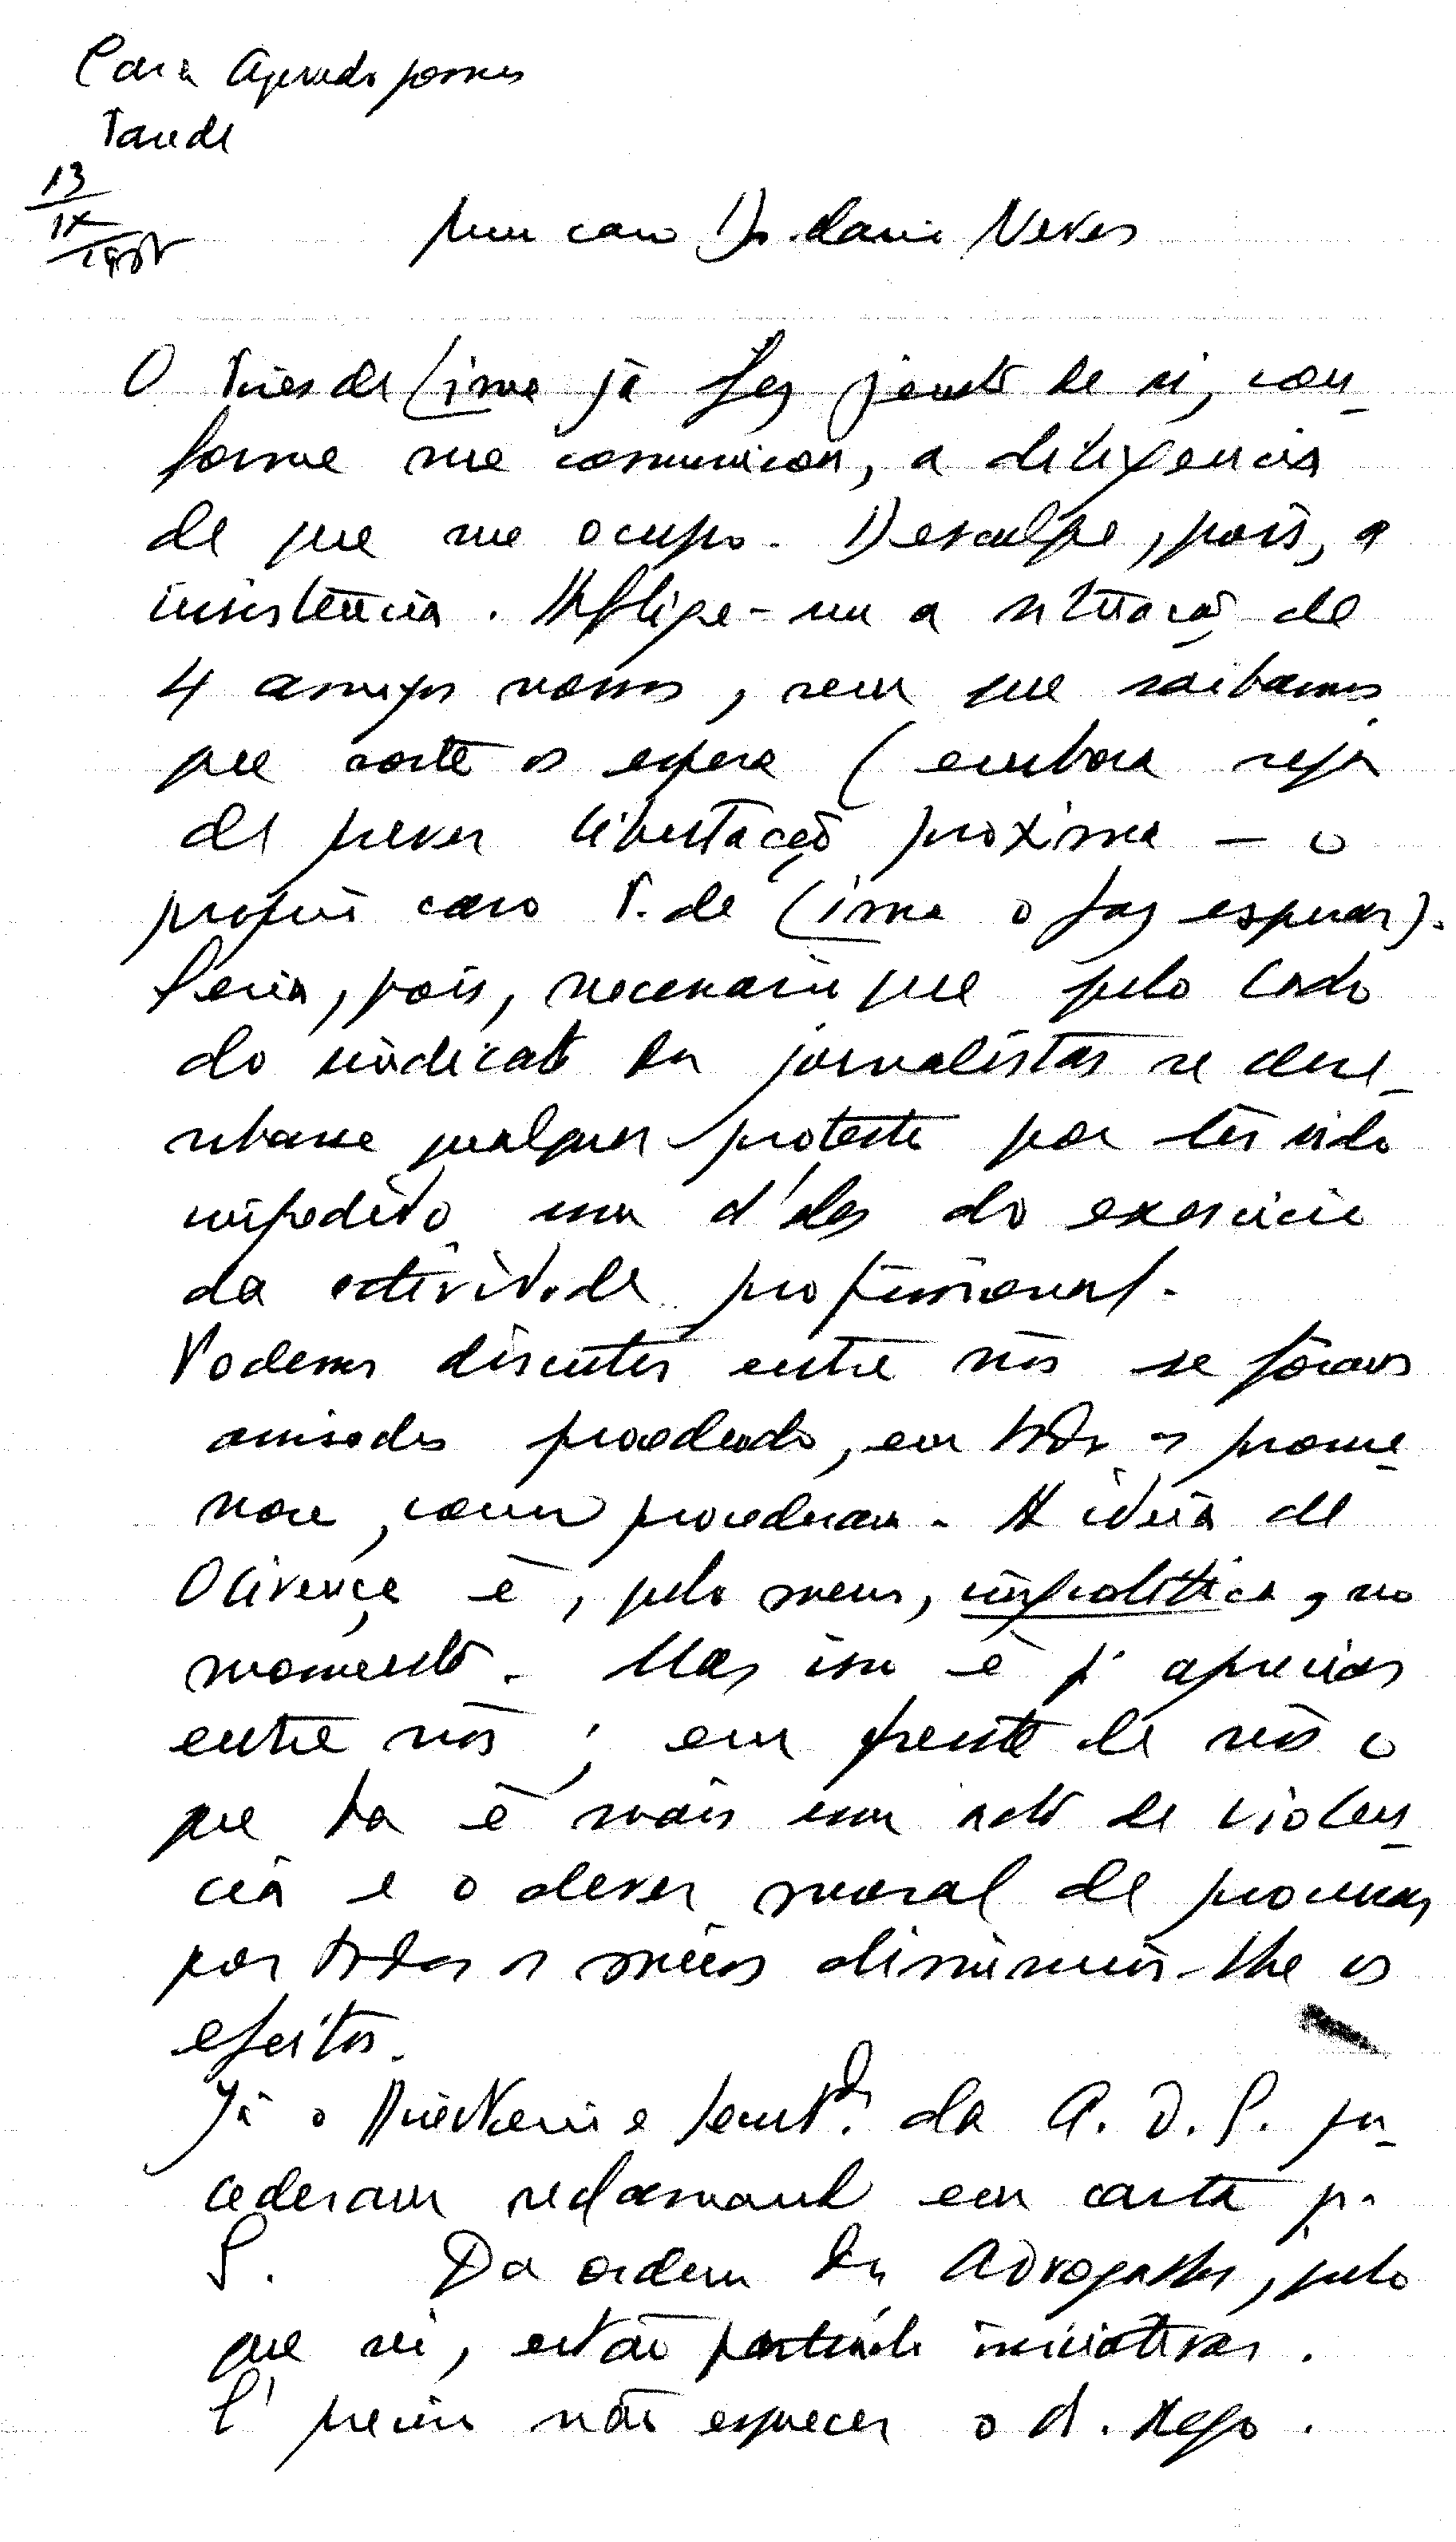 Casa Azevedo Gomes
Tarde
13
IX
Meu caro Dr. Mario Neves
O Pires de Lima já fez junto de si, con-
forme me comunicou, a diligencia
de que me ocupo. Desculpe, pois, a
insistência. Aflige-me a situação de
4 amigos nossos, sem que saibamos
que sorte os espera (embora seja
de prever libertação próxima — o
próprio caso P. de Lima o faz esperar).
Seria, pois, necessario que pelo lado
do sindicato dos jornalistas se dese-
nhasse qualquer protesto por ter sido
impedido um d'eles do exercicio
da actividade profissional.
Podemos discutir entre nós se fôram
avisados procedendo, em todos os porme-
nores, como procederam. A ideia de
Olivença é, pelo menos, impolitica, no
momento. Mas isso é p.ª apreciar
entre nós; em frente de nós o
que ha é mais um acto de violen-
cia e o dever moral de procurar
por todos os meios diminuir-lhe os
efeitos.
Já o Directorio e da A. D. S. pro-
cederam reclamando em carta p.ª
S. Da ordem dos Advogados, pelo
que sei, estão partindo iniciativas.
É preciso não esquecer o A. Rego.